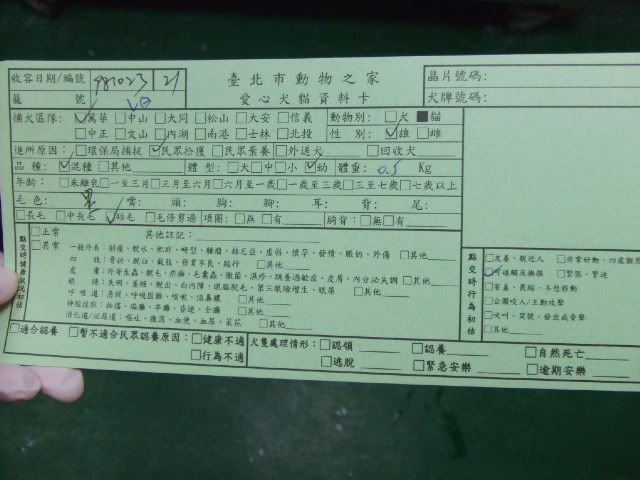 收容日期/編號 981023 21 臺北市動物之家 晶片號碼:
籠號 愛心犬貓資料卡 犬牌號碼:
捕犬區隊: ☑萬華 □中山 □大同 □松山 □大安 □信義 動物別: □犬 ■貓
□中正 □文山 □內湖 □南港 □士林 □北投 性別: ☑雄 □雌
進所原因: □環保局捕捉 ☑民眾拾獲 □民眾棄養 □外送犬 □回收犬
品種: ☑混種 □其他 體型: □大 □中 □小 ☑幼 體重: 0.5 Kg
年齡: □未離乳 □一至三月 □三月至六月 □六月至一歲 □一歲至三歲 □三至七歲 □七歲以上
毛色: 黑 嘴: 頭: 胸: 腳: 耳: 背: 尾:
□長毛 □中長毛 ☑短毛 □毛修剪過 項圈: □無 □有 胸背: □無 □有
點交時健康狀況初估 □正常 其他註記:
□異常 一般外表: 削瘦、脫水、肥胖、畸型、腫瘤、虛弱、懷孕、發情、脹奶、外傷 □其他
四肢: 骨折、脫臼、截肢、發育不良、跛行 □其他
皮膚: 外寄生蟲、脫毛、疥癬、毛囊蟲、黴菌、濕疹、跳蚤過敏症、皮屑、內分泌失調 □其他
眼睛: 失明、萎縮、脫出、白內障、眼眶脫毛、第三眼瞼增生、眼屎 □其他
呼吸道: 急促、呼吸困難、咳嗽、流鼻膿 □其他
神經症狀: 抽搐、偏癱、半癱、昏迷、全癱 □其他
消化道/泌尿道: 嘔吐、腹瀉、血便、血尿、菜花 □其他
點交時行為初估 □友善、親近人 □非常好動、四處
☑可碰觸及撫摸 □緊張、緊迫
□害羞、畏縮、不想移動
□企圖咬人/主動攻擊
□吠叫、哭號、發出威脅聲
□其他
□適合認養 □暫不適合民眾認養原因: □健康不適 犬隻處理情形: □認領 □認養 □自然死亡
□行為不適 □逃脫 □緊急安樂 □逾期安樂